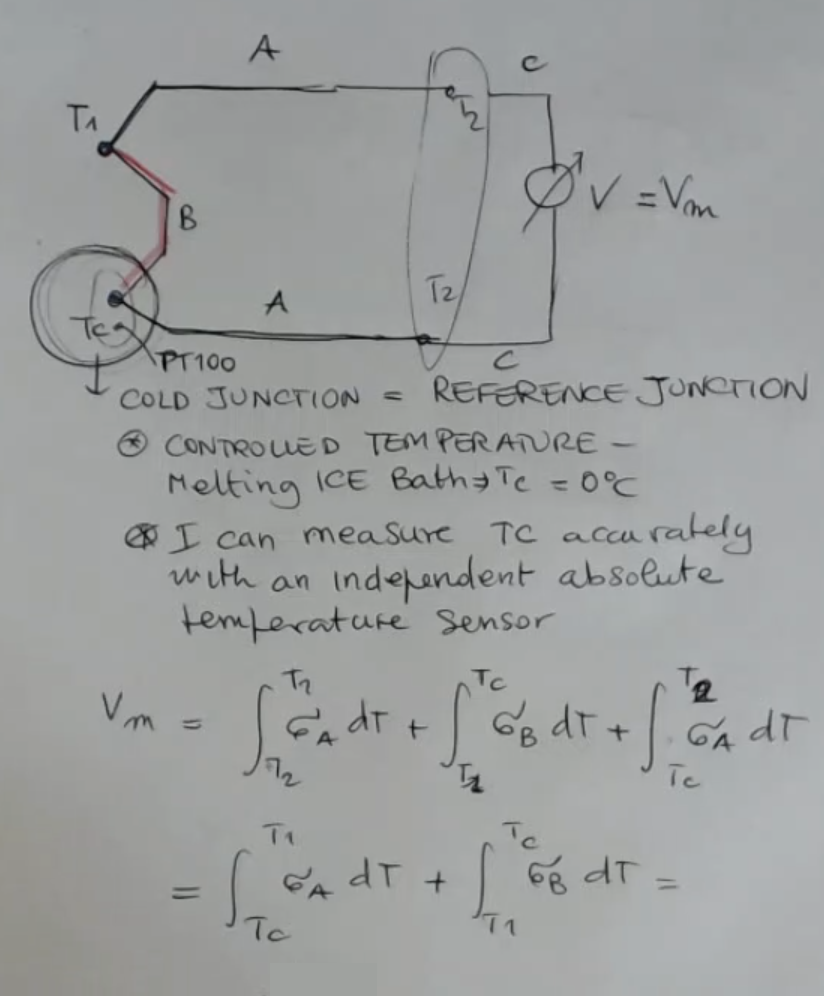 A
C
T1
T2
B
V = Vm
T2
A
Tc
PT100
C
↓ COLD JUNCTION = REFERENCE JUNCTION
⊛ CONTROLLED TEMPERATURE –
Melting ICE Bath ⇒ Tc = 0°C
⊛ I can measure TC accurately
with an independent absolute
temperature sensor
Vm = ∫_{T2}^{T1} σA dT + ∫_{T1}^{Tc} σB dT + ∫_{Tc}^{T2} σA dT
= ∫_{Tc}^{T1} σA dT + ∫_{T1}^{Tc} σB dT =